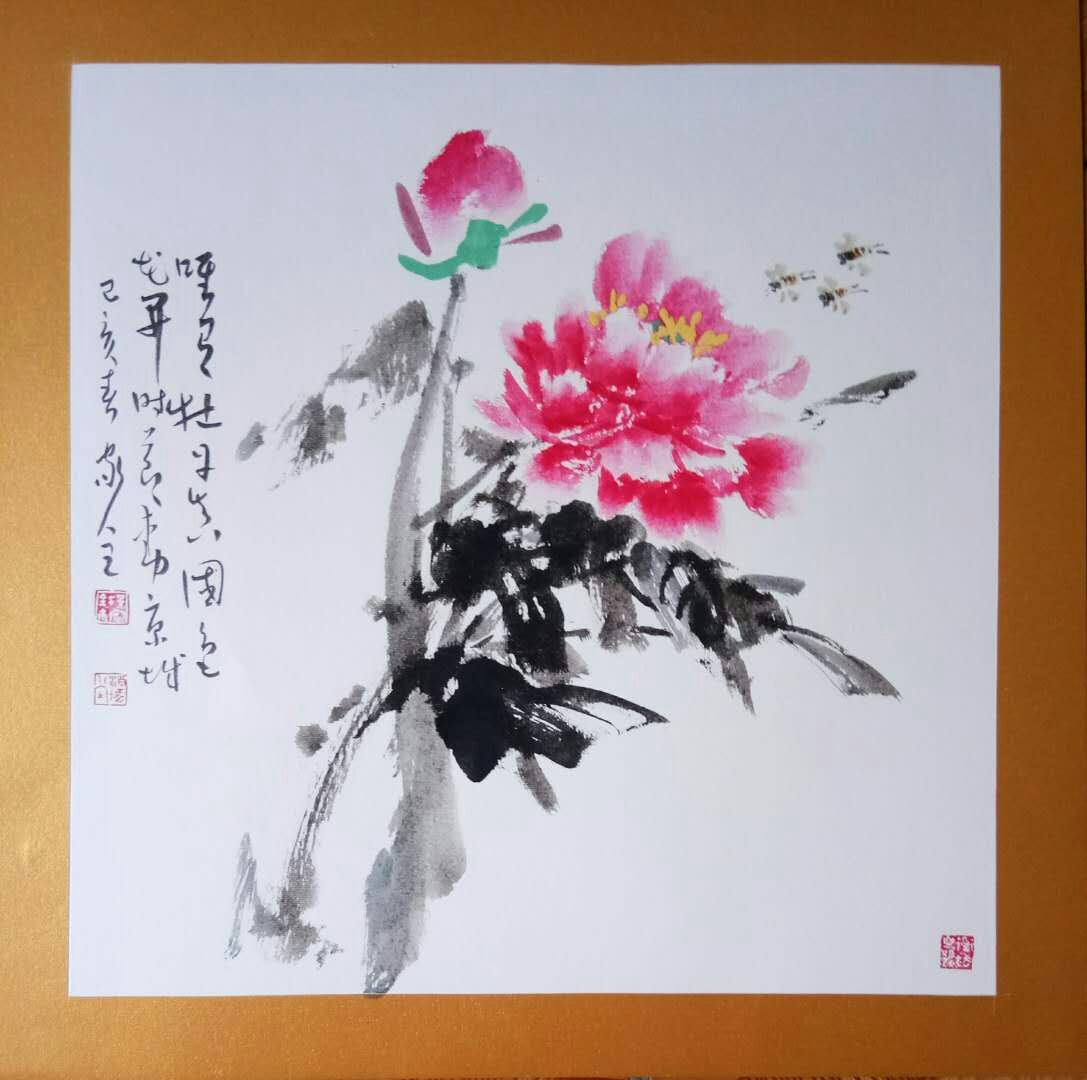 唯有牡丹真国色
花开时节动京城
己亥春家全